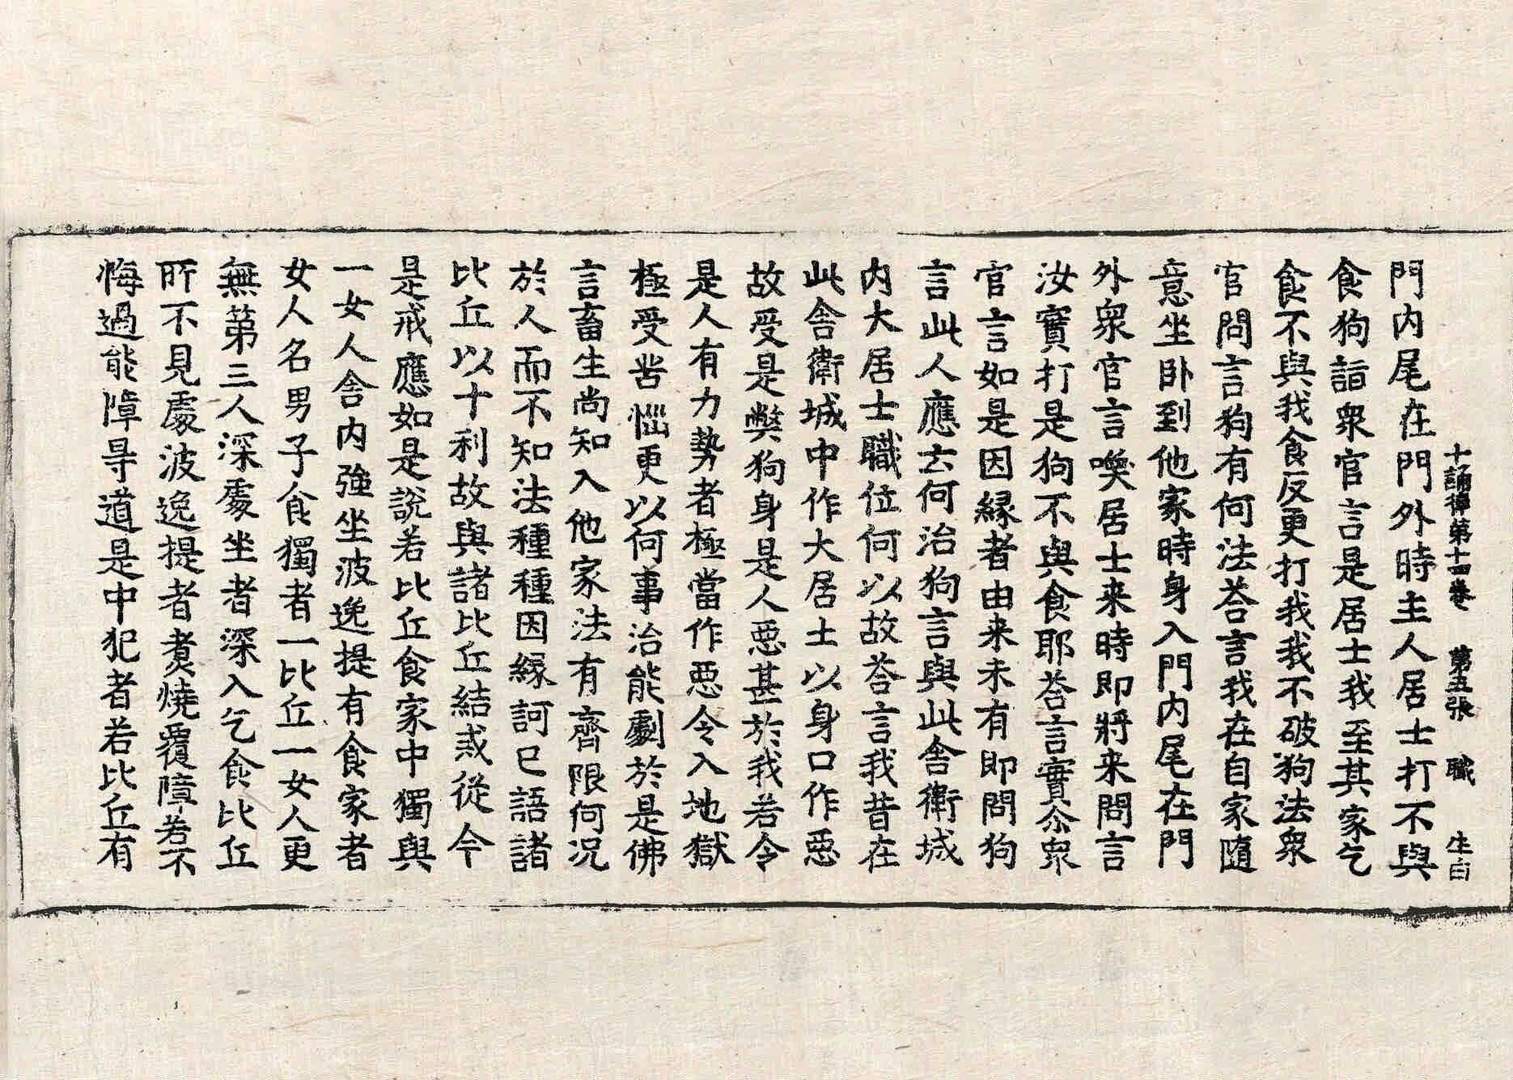 十誦律第十四卷　第五張　職　生白
門内尾在門外時主人居士打不與
食狗詣衆官言是居士我至其家乞
食不與我食反更打我我不破狗法衆
官問言狗有何法荅言我在自家随
意坐卧到他家時身入門内尾在門
外衆官言喚居士来時即將来問言
汝實打是狗不與食耶荅言實尒衆
官言如是因縁者由来未有即問狗
言此人應云何治狗言與此舎衛城
内大居士職位何以故荅言我昔在
此舎衛城中作大居士以身口作惡
故受是弊狗身是人惡甚於我若令
是人有力勢者極當作惡令入地獄
極受苦惱更以何事治能劇於是佛
言畜生尚知入他家法有齊限何况
於人而不知法種種因縁訶已語諸
比丘以十利故與諸比丘結戒從今
是戒應如是說若比丘食家中獨與
一女人舎内強坐波逸提有食家者
女人名男子食獨者一比丘一女人更
無第三人深處坐者深入乞食比丘
所不見處波逸提者煑燒覆障若不
悔過能障㝵道是中犯者若比丘有